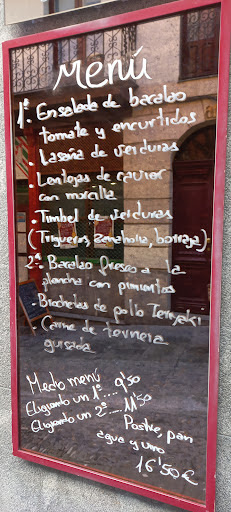 Menú
1º. Ensalada de bacalao
tomate y encurtidos
. Lasaña de verduras
. Lentejas de caviar
con morcilla
. Timbal de verduras
(Trigueros, zanahoria, borraja)
2º. Bacalao fresco a la
plancha con pimientos
. Brochetas de pollo Teriyaki
Carne de ternera
guisada
Medio menú
Eligiendo un 1º.... 9'50
Eligiendo un 2º.... 11'50
Postre, pan
agua y vino
16'50€